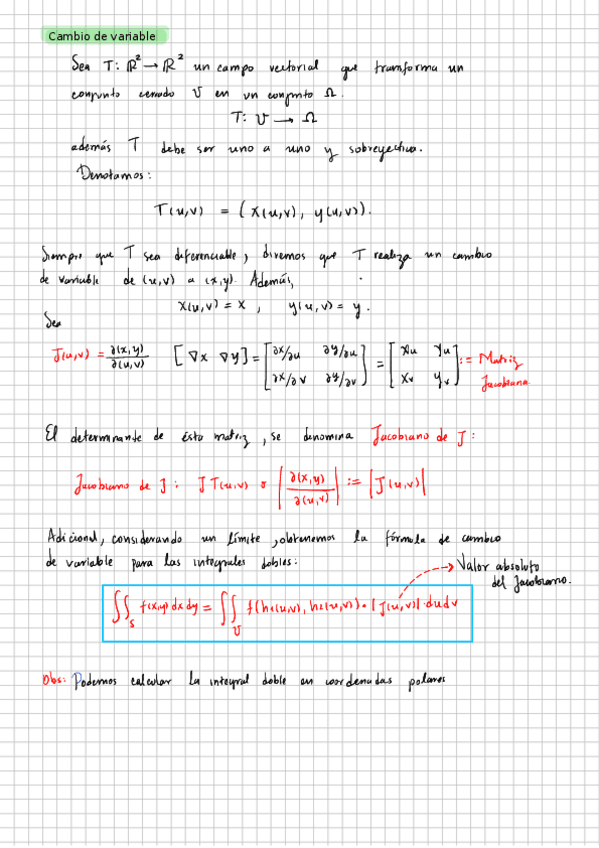 Cambio de variable
Sea T: ℝ² → ℝ² un campo vectorial que transforma un
conjunto cerrado U en un conjunto Ω.
T: U → Ω
además T debe ser uno a uno y sobreyectiva.
Denotamos:
T(u,v) = (x(u,v), y(u,v)).
Siempre que T sea diferenciable, diremos que T realiza un cambio
de variable de (u,v) a (x,y). Además,
x(u,v) = x , y(u,v) = y.
Sea
J(u,v) = ∂(x,y)/∂(u,v) [∇x ∇y] = [∂x/∂u ∂y/∂u; ∂x/∂v ∂y/∂v] = [xu yu; xv yv] := Matriz Jacobiana
El determinante de ésta matriz, se denomina Jacobiano de J:
Jacobiano de J: JT(u,v) o |∂(x,y)/∂(u,v)| := |J(u,v)|
Adicional, considerando un límite, obtenemos la fórmula de cambio
de variable para las integrales dobles:
Valor absoluto
del Jacobiano.
∬S f(x,y) dx dy = ∬U f(h1(u,v), h2(u,v)) · |J(u,v)| · du dv
Obs: Podemos calcular la integral doble en coordenadas polares